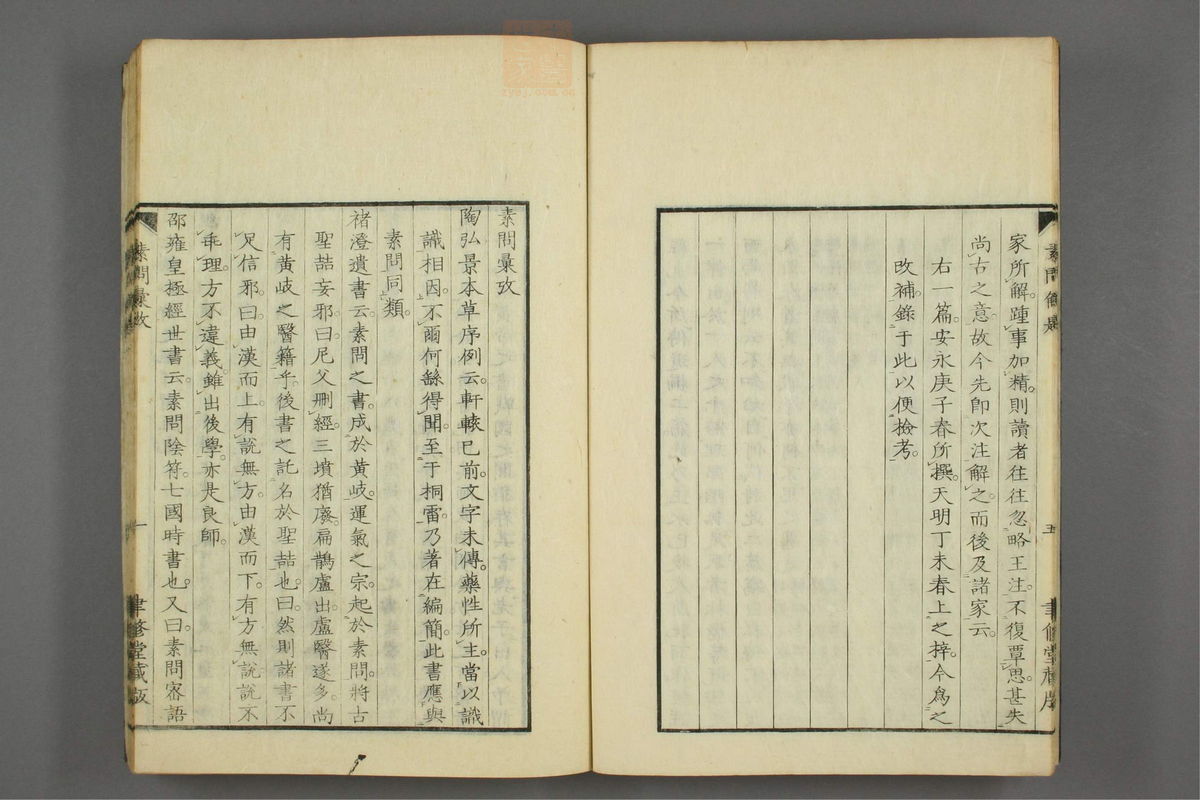 家所解踵事加精則讀者往往忽略王注不復覃思甚失
尚古之意故今先卽次注解之而後及諸家云
右一篇安永庚子春所撰天明丁未春上之梓今爲之
改補錄于此以便撿考
素問彙攷
陶弘景本草序例云軒轅已前文字未傳藥性所主當以識
識相因不爾何繇得聞至于桐雷乃著在編簡此書應與
素問同類
褚澄遺書云素問之書成於黃岐運氣之宗起於素問將古
聖喆妄邪曰尼父刪經三墳猶廢扁鵲盧出盧醫遂多尚
有黃岐之醫籍乎後書之託名於聖喆也曰然則諸書不
足信邪曰由漢而上有說無方由漢而下有方無說說不
乖理方不違義雖出後學亦是良師
邵雍皇極經世書云素問陰符七國時書也又曰素問密語
素問彙攷
一
聿修堂藏版
五